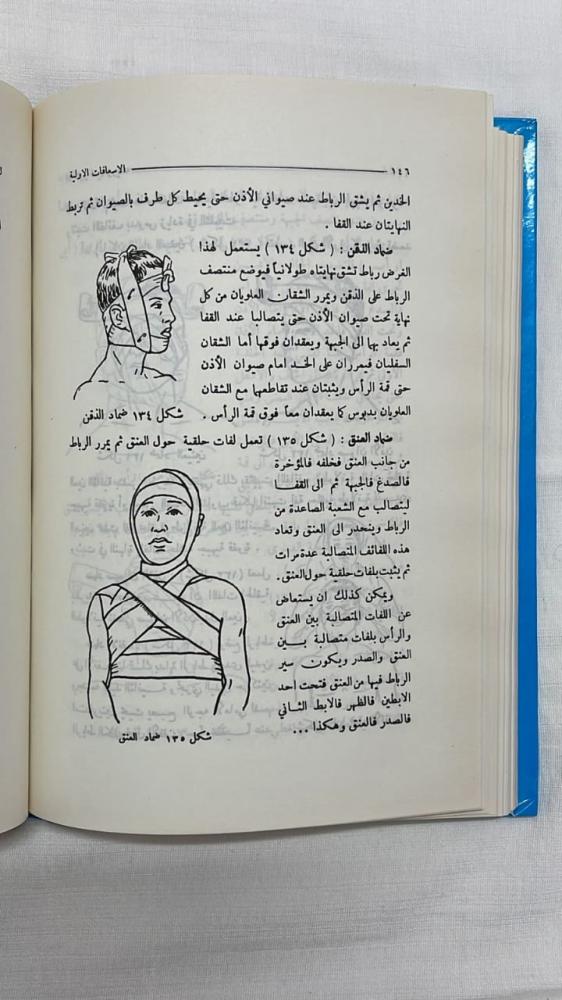 ١٤٦
الاسعافات الاولية
الخدين ثم يشق الرباط عند صيواني الأذن حتى يحيط كل طرف بالصيوان ثم تربط
النهايتان عند القفا .
ضماد الذقن : ( شكل ١٣٤ ) يستعمل لهذا
الغرض رباط تشق نهايتاه طولانياً فيوضع منتصف
الرباط على الذقن ويمرر الشقان العلويان من كل
نهاية تحت صيوان الأذن حتى يتصالبا عند القفا
ثم يعاد بهما الى الجبهة ويعقدان فوقها أما الشقان
السفليان فيمرران على الخد امام صيوان الأذن
حتى قمة الرأس ويثبتان عند تقاطعهما مع الشقان
العلويان بدبوس كما يعقدان معاً فوق قمة الرأس .
شكل ١٣٤ ضماد الذقن
ضماد العنق : ( شكل ١٣٥ ) تعمل لفات حلقية حول العنق ثم يمرر الرباط
من جانب العنق فخلفه فالمؤخرة
فالصدغ فالجبهة ثم الى القفا
ليتصالب مع الشعبة الصاعدة من
الرباط وينحدر الى العنق وتعاد
هذه اللفائف المتصالبة عدة مرات
ثم يثبت بلفات حلقية حول العنق .
ويمكن كذلك ان يستعاض
عن اللفات المتصالبة بين العنق
والرأس بلفات متصالبة بين
العنق والصدر ويكون سير
الرباط فيها من العنق فتحت أحد
الابطين فالظهر فالابط الثاني
فالصدر فالعنق وهكذا ...
شكل ١٣٥ ضماد العنق